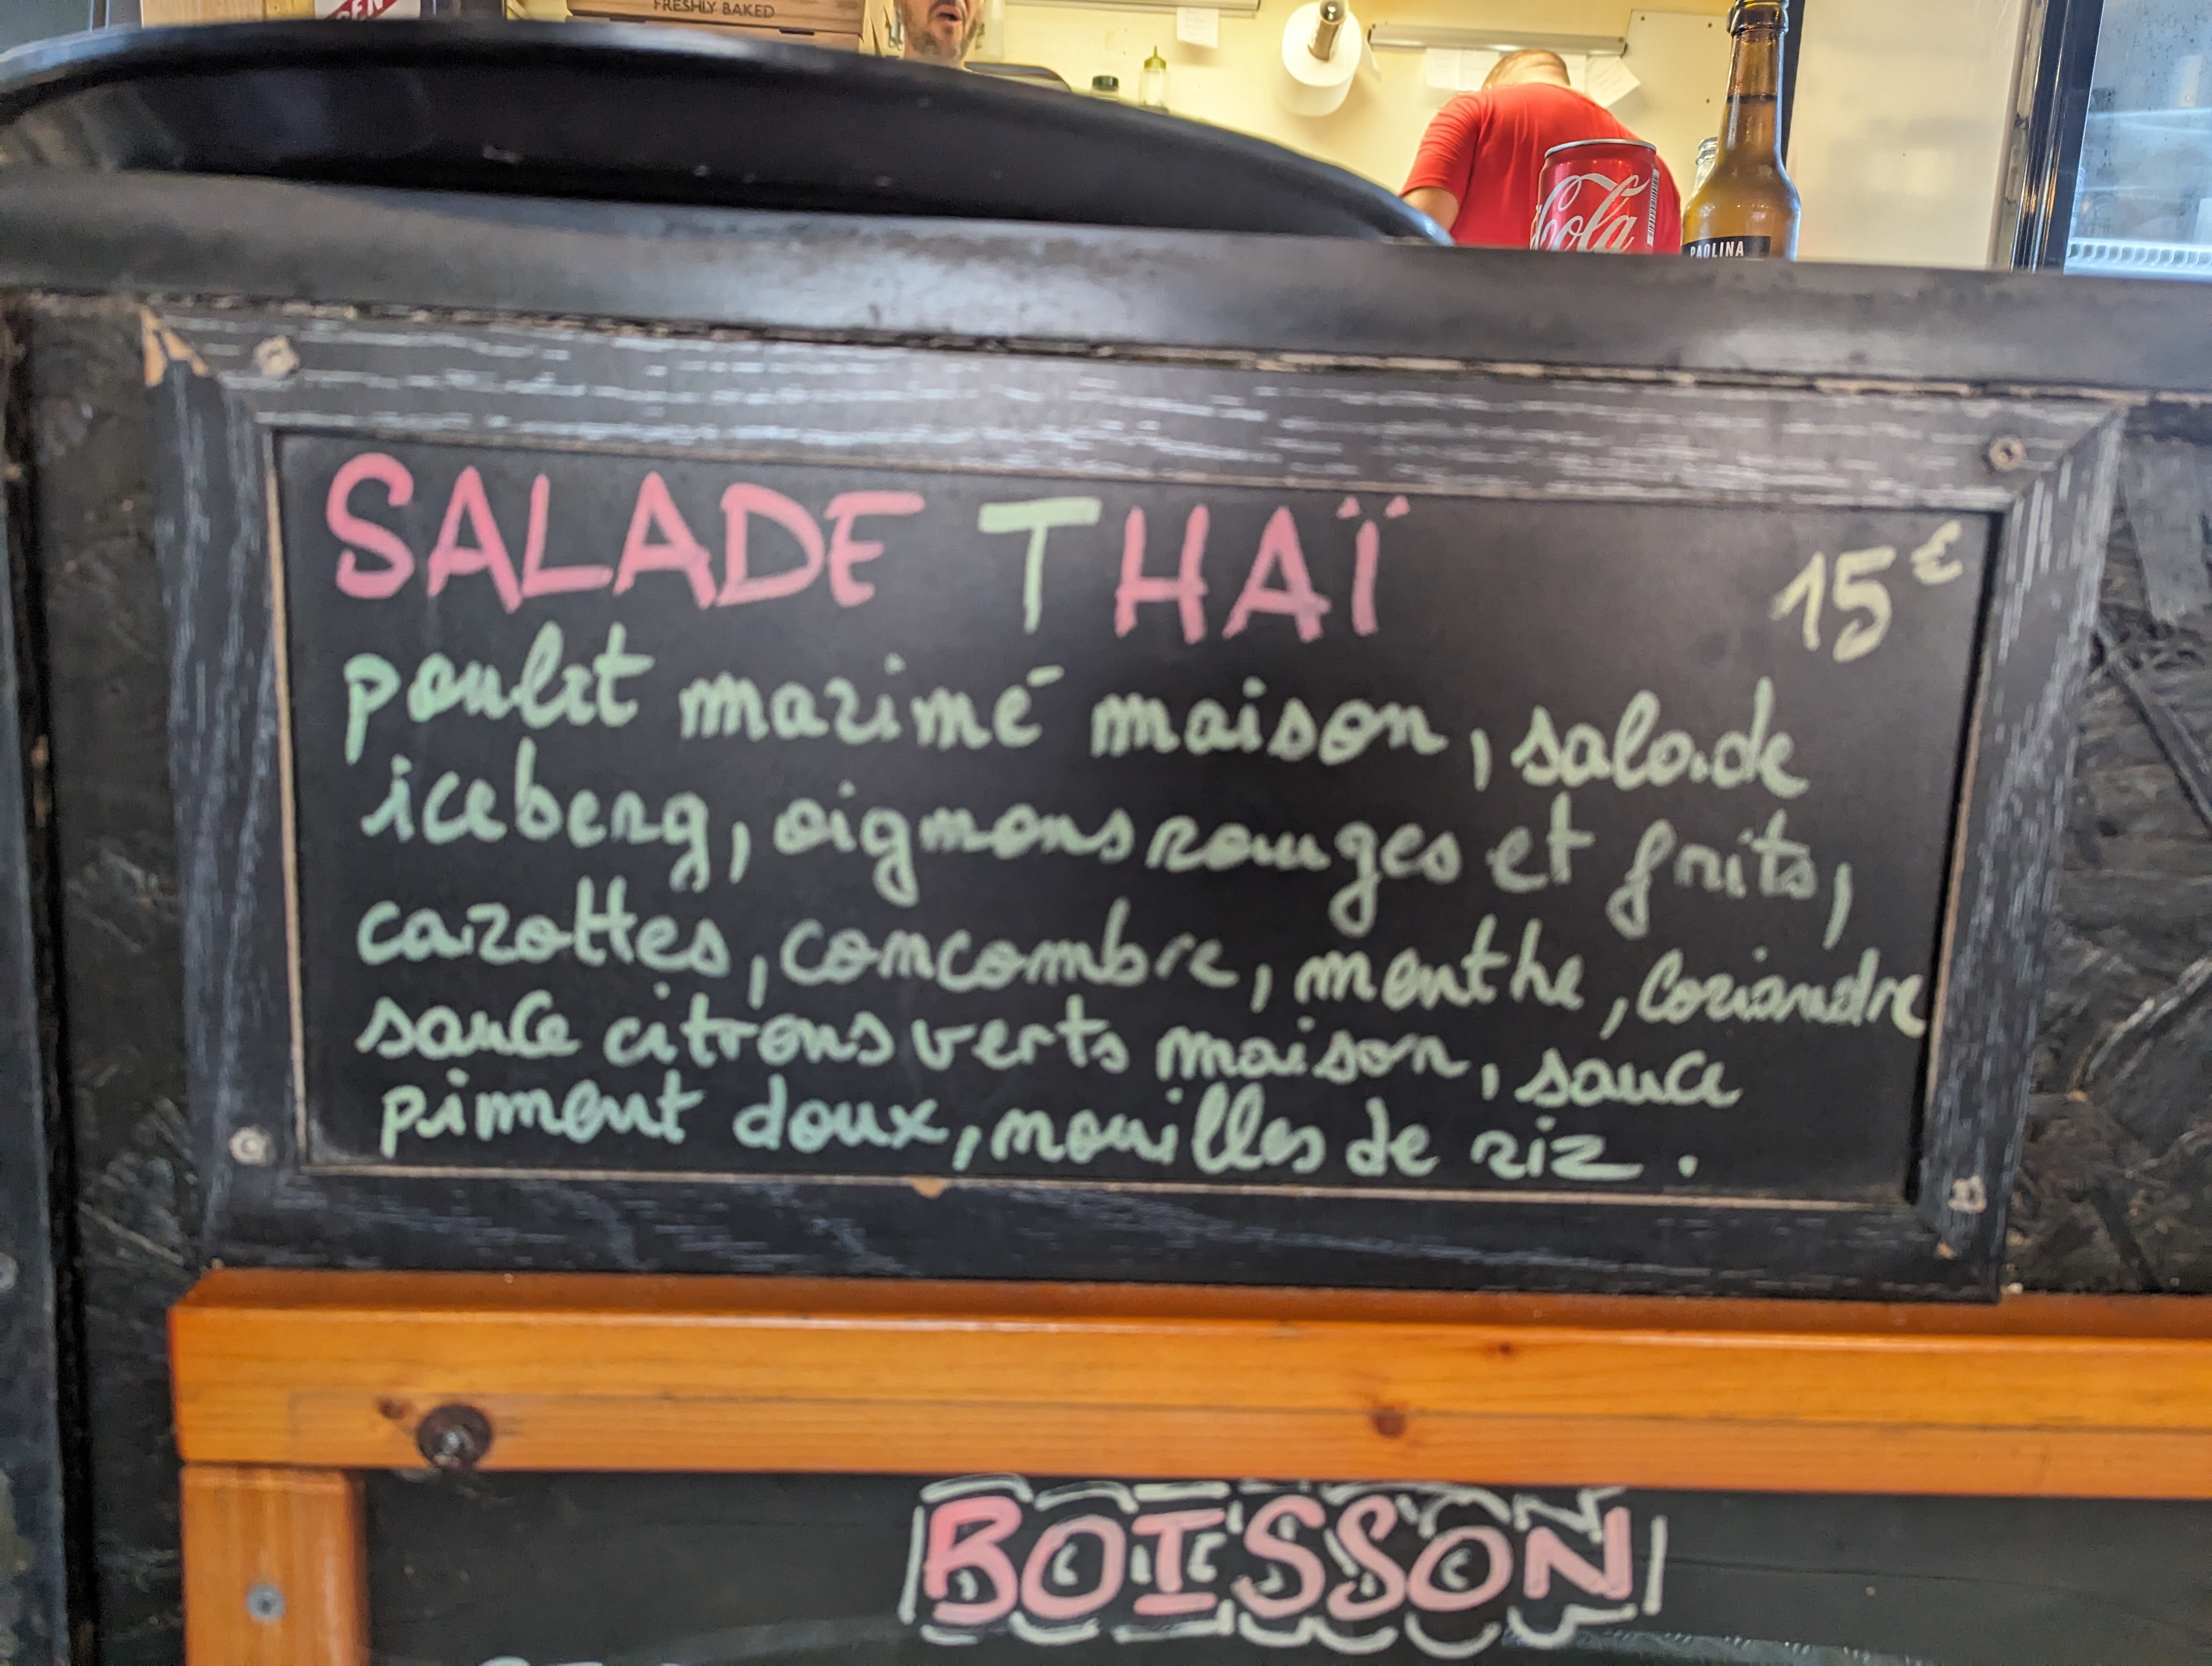 FRESHLY BAKED
Cola
PAOLINA
SALADE THAÏ 15€
poulet mariné maison, salade
iceberg, oignons rouges et frits,
carottes, concombre, menthe, coriandre
sauce citrons verts maison, sauce
piment doux, nouilles de riz.
BOISSON